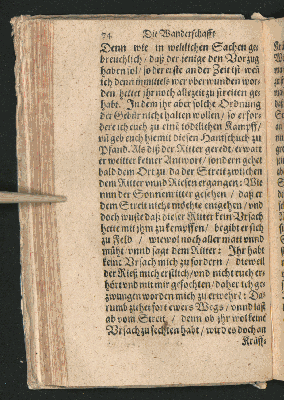 74 Die Wanderschafft
Denn wie in weltlichen Sachen ge
breuchlich / daß der jenige den Vorzug
haben sol / so der erste an der Zeit ist: weñ
ich denn inmittels wer vberwunden wor-
den hettet jhr noch allezeit zu streiten ge-
habt. Indem jhr aber solche Ordnung
der Gebür nicht halten wollen / so erfor-
dere ich euch zu eine tödtlichen Kampff /
vñ geb euch hiemit diesen Hantschuch zu
Pfand. Als diß der Ritter geredt / erwart
er weitter keiner Antwort / sondern gehet
bald dem Ort zu da der Streit zwischen
dem Ritter vnd Riesen ergangen: Wie
nun der Sonnenritter gesehen / daß er
dem Streit nicht möchte entgehen / vnd
doch wuste daß dieser Ritter kein Vrsach
hette mit jhm zu kempffen / begibt er sich
zu Feld / wiewol noch aller matt vnnd
müht / vnnd sagt dem Ritter: Ihr habt
keine Vrsach mich zu fordern / dieweil
der Rieß mich erstlich / vnd nicht euch er-
hört vnd mit mir gefochten / daher ich ge-
zwungen worden mich zu erwehrē: Da-
rumb ziehet fort ewers Wegs / vnnd laßt
ab vom Streit / denn ob jhr wol keine
Vrsach zu fechten habt / wird es doch an
Kräff-